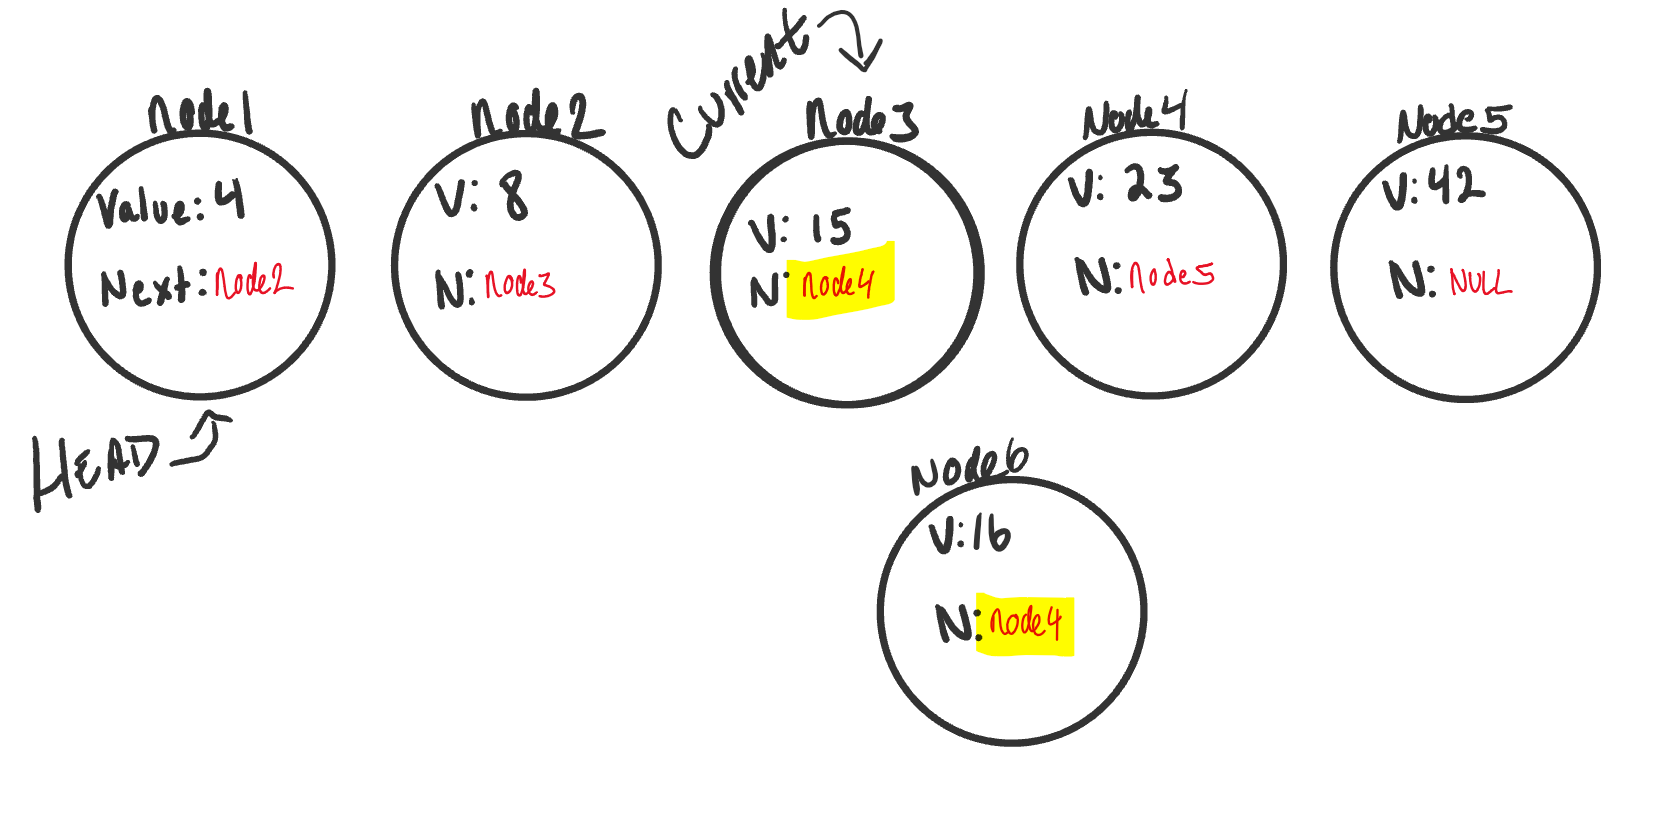 Current
node1
Value: 4
Next: node2
HEAD
node2
V: 8
N: node3
node3
V: 15
N: node4
Node4
V: 23
N: node5
Node5
V: 42
N: NULL
Node6
V: 16
N: node4